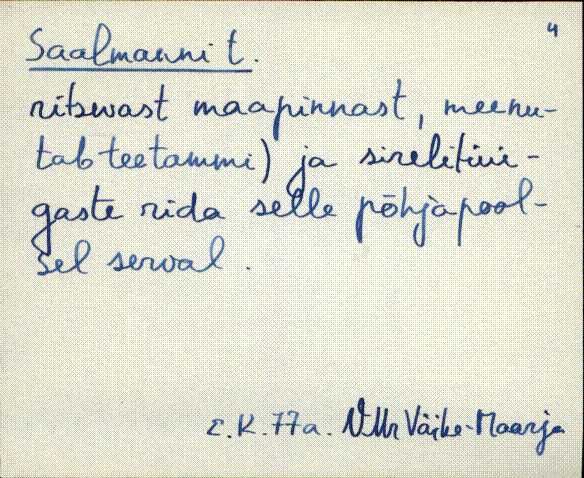 4
Saalmanni t.
ritsevast maapinnast, meenu-
tab teetammi) ja sirelitüü-
gaste rida selle põhjapool-
sel serval.
E.K. 77a. VMr Väike-Maarja